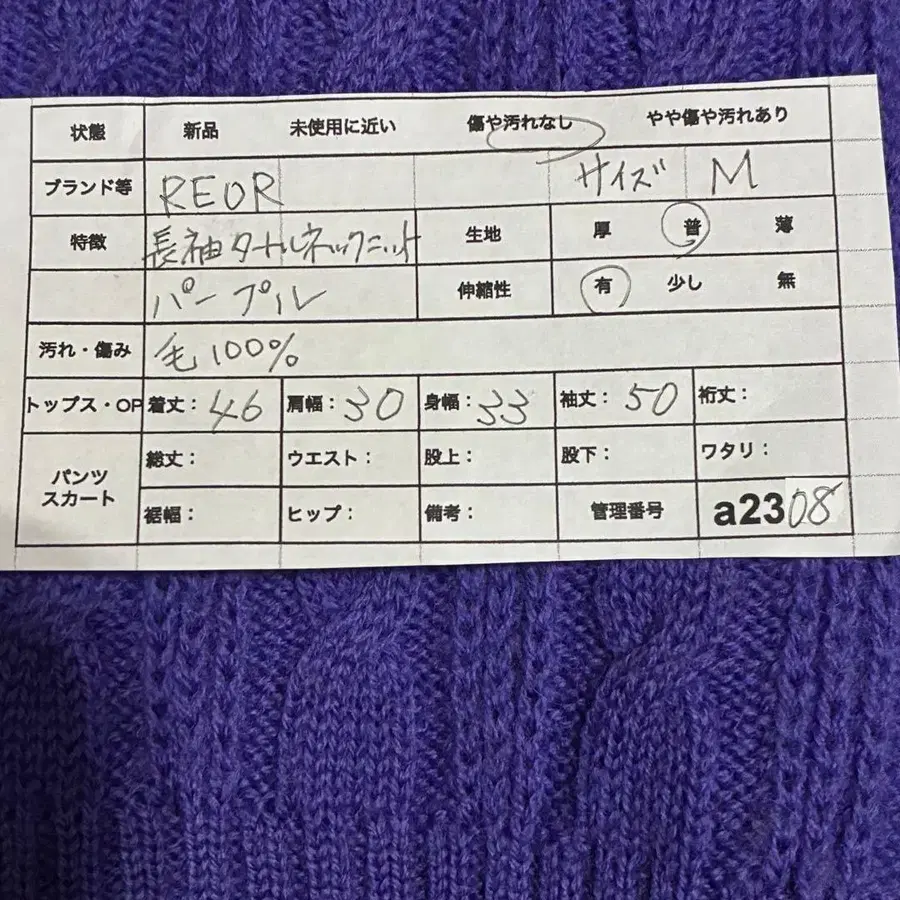 状態 新品 未使用に近い 傷や汚れなし やや傷や汚れあり
ブランド等 REOR サイズ M
特徴 長袖タートルネックニット 生地 厚 普 薄
パープル 伸縮性 有 少し 無
汚れ・傷み 毛100%
トップス・OP 着丈: 46 肩幅: 30 身幅: 33 袖丈: 50 裄丈:
パンツ スカート 総丈: ウエスト: 股上: 股下: ワタリ:
裾幅: ヒップ: 備考: 管理番号 a2308